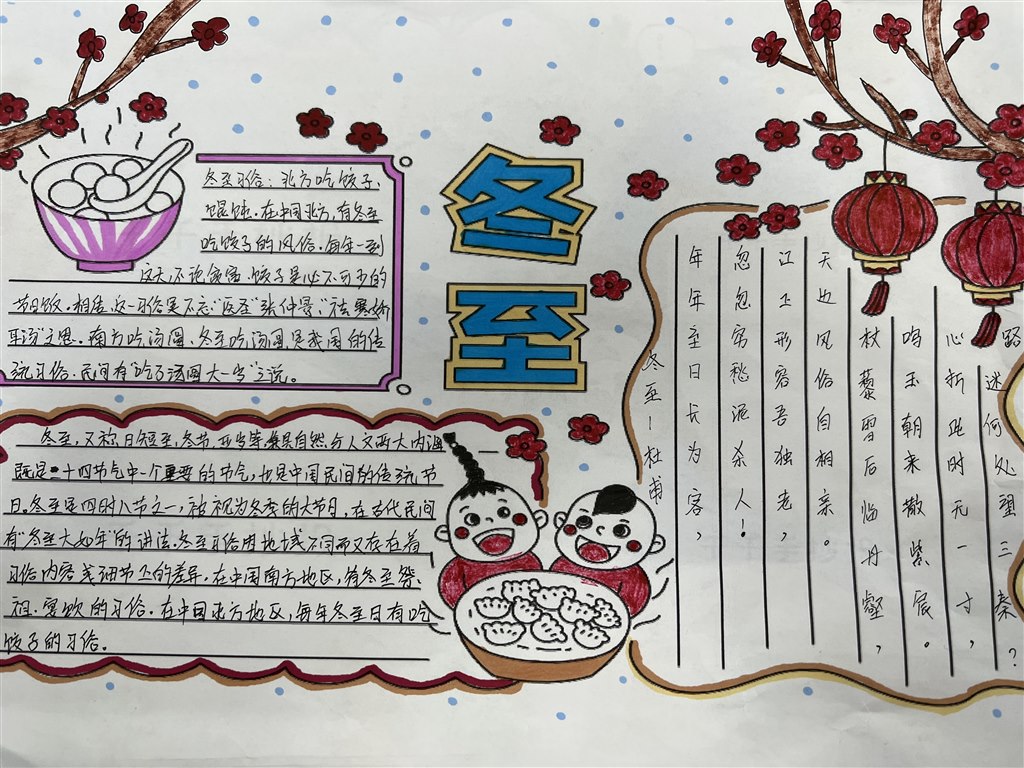 冬至习俗：北方吃饺子、
馄饨。在中国北方,有冬至
吃饺子的风俗。每年一到
这天,不论贫富,饺子是必不可少的
节日饭。相传,这一习俗是不忘“医圣”张仲景“祛寒娇
耳汤”之恩。南方吃汤圆、冬至吃汤圆是我国的传
统习俗。民间有“吃了汤圆大一岁”之说。
冬
至
冬至,又称日短至,冬节,亚岁等,兼具自然与人文两大内涵
既是二十四节气中一个重要的节气,也是中国民间的传统节
日。冬至是四时八节之一,被视为冬季的大节日,在古代民间
有“冬至大如年”的讲法。冬至习俗因地域不同而又存在着
习俗内容或细节上的差异。在中国南方地区,有冬至祭
祖、宴饮的习俗。在中国北方地区,每年冬至日有吃
饺子的习俗。
冬至-杜甫
年年至日长为客,
忽忽穷愁泥杀人!
江上形容吾独老。
天边风俗自相亲。
杖藜雪后临丹壑,
鸣玉朝来散紫宸。
心折此时无一寸,
路迷何处望三秦?